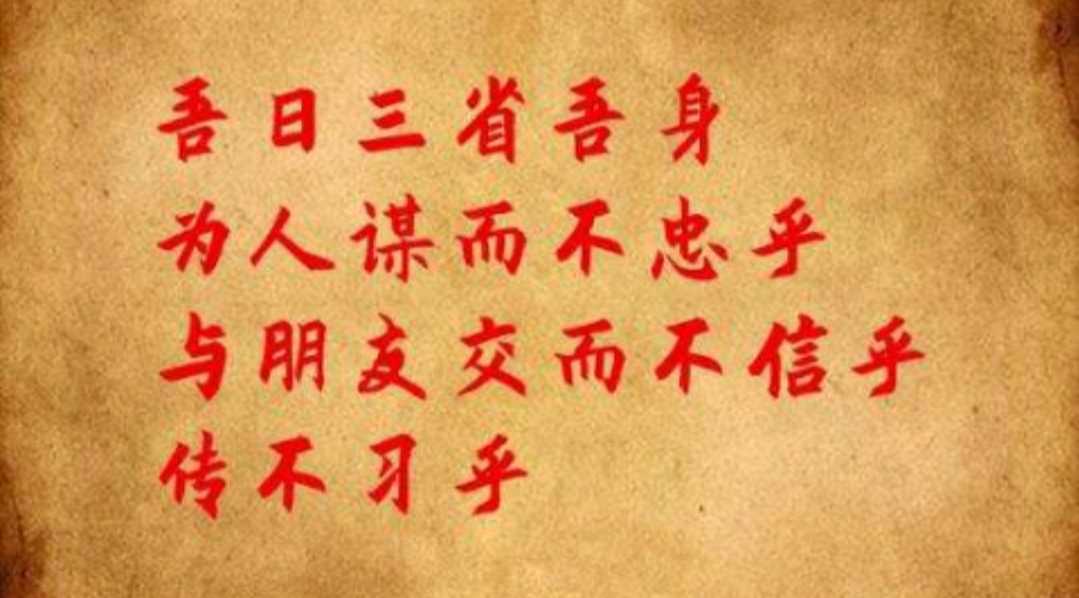 吾日三省吾身
为人谋而不忠乎
与朋友交而不信乎
传不习乎